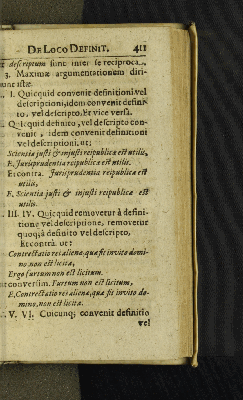 DE LOCO DEFINIT. 411
t descriptum sunt inter se reciproca.
3. Maximæ argumentationem diri-
unt istæ.
I. Quicquid convenit definitioni vel
descriptioni, idem convenit defini-
to, vel descripto. Et vice versâ.
Quicquid definito, vel descripto con-
venit, idem convenit definitioni
vel descriptioni. ut:
Scientia justi & injusti reipublicæ est utilis,
E. Jurisprudentia reipublicæ est utilis.
Et contra. Jurisprudentia reipublicæ est
utilis,
E. Scientia justi & injusti reipublicæ est
utilis.
III. IV. Quicquid removetur à defini-
tione vel descriptione, removetur
quoq; à definito vel descripto,
Et contrà. ut:
Contrectatio rei alienæ, quæ fit invito domi-
no, non est licita,
Ergo furtum non est licitum.
t conversim. Furtum non est licitum,
E. Contrectatio rei alienæ, quæ fit invito do-
mino, non est licita.
V. VI. Cuicunq; convenit definitio
vel